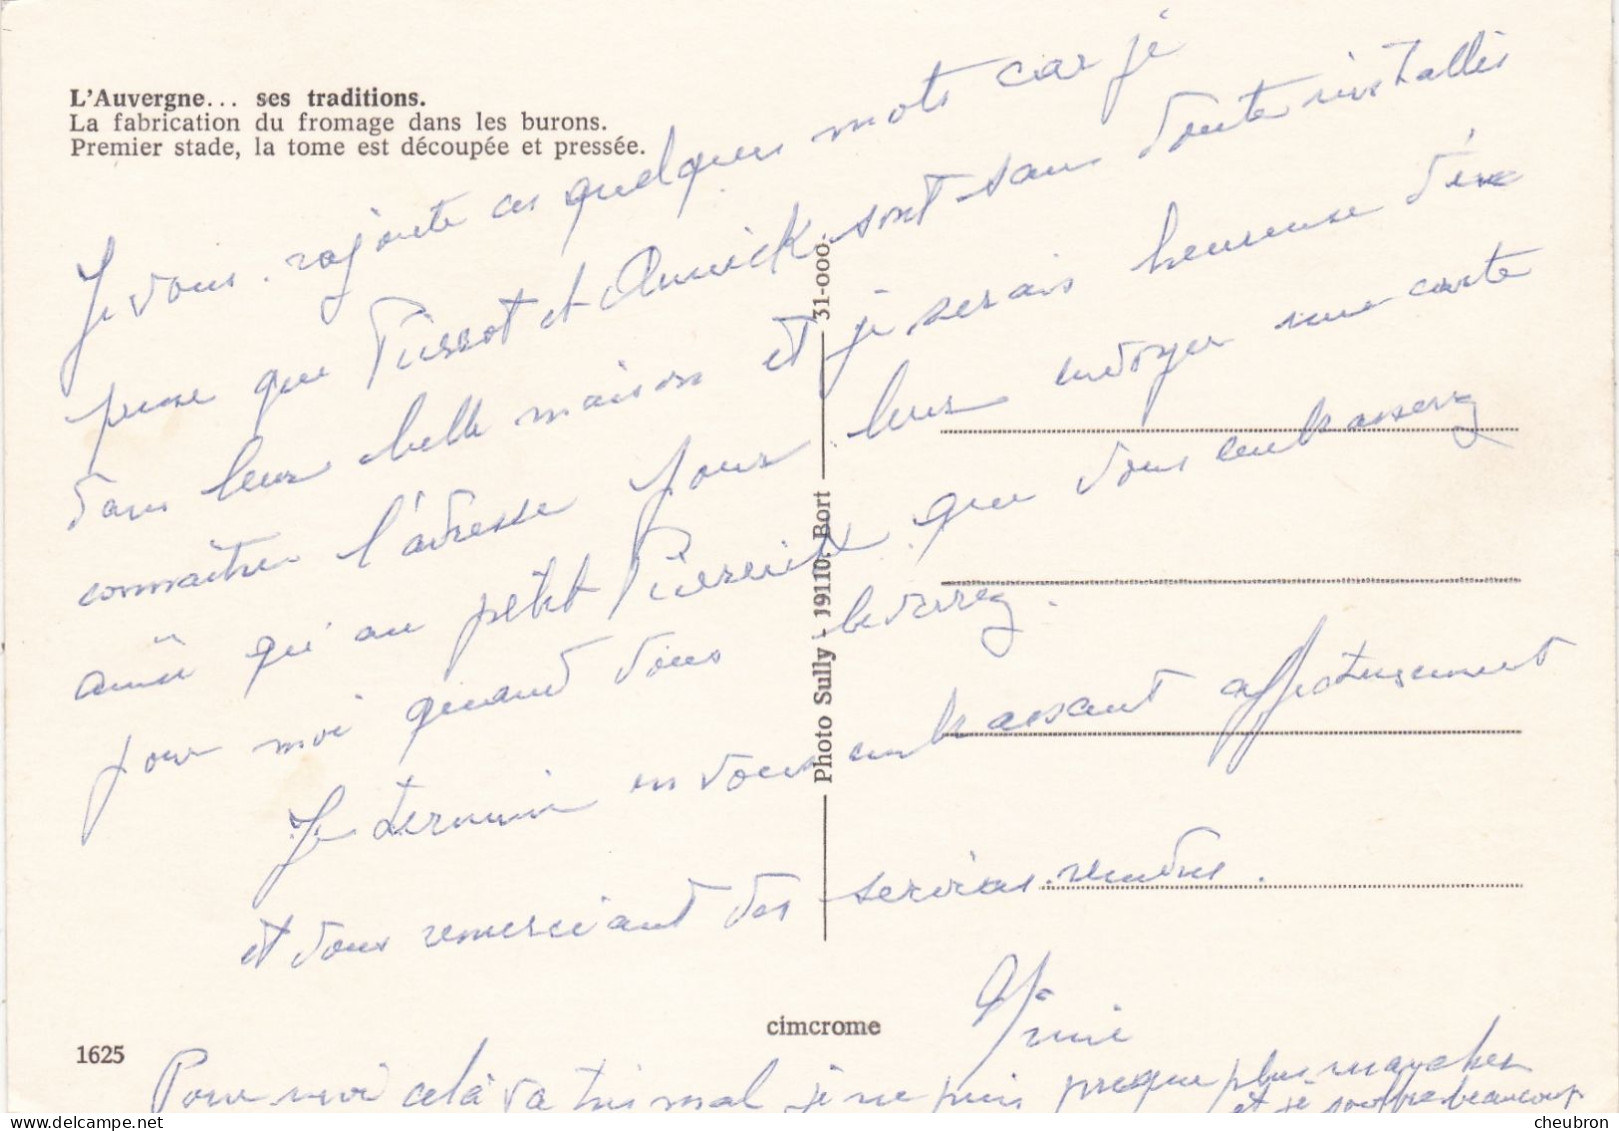 L'Auvergne... ses traditions.
La fabrication du fromage dans les burons.
Premier stade, la tome est découpée et pressée.
Je vous rajoute ces quelques mots car je
pense que Pierrot et Annick sont sans doute installés
dans leur belle maison et je serais heureuse d'en
connaître l'adresse pour leur envoyer une carte
ainsi qu'au petit que vous embasserez
pour moi quand vous le verrez.
Je termine en vous embrassant affectueusement
et vous remerciant des services rendus.
Pour moi celà va très mal je ne puis presque plus marcher
et je souffre beaucoup
Photo Sully - 19110. Bort 31-000
cimcrome
1625
delcampe.net
cheubron